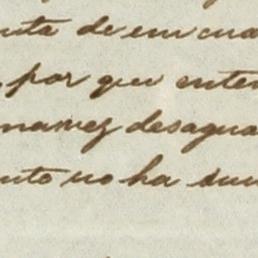 nta de en cua
por que enten
na vez desagua
nto no ha sum